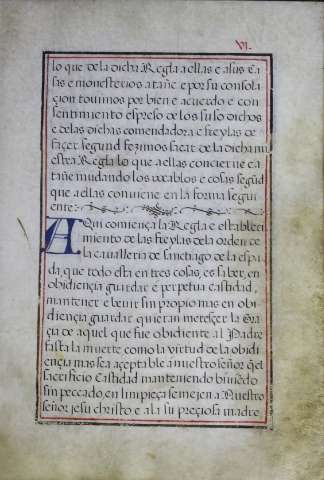 VI.
lo que de la dicha Regla a ellas e a sus Ca
sas e monesterios atañe e por su consola
çion tovimos por bien e acuerdo e con
sentimiento espreso de los suso dichos
e de las dichas comendadora e freylas de
façer segund fezimos sacar de la dicha nu
estra Regla lo que a ellas concierne e a
tañe mudando los vocablos e cosas segũd
que a ellas conviene en la forma segui
ente
AQui comiença la Regla e estableci
miento de las freylas de la orden de
la cavalleria de sanctiago de la espa
da, que todo esta en tres cosas, es saber, en
obidiençia guardar e perpetua Castidad,
mantener e bevir sin propio mas en obi
diençia guardar quieran meresçer la Gra
çia de aquel que fue obidiente al Padre
fasta la muerte como la virtud de la obidi
ençia mas sea açeptable a nuestro señor q̃ el
sacrificio Castidad manteniendo biviẽdo
sin peccado, en limpieça semejen a Nuestro
señor jesu christo e a la su preçiosa madre